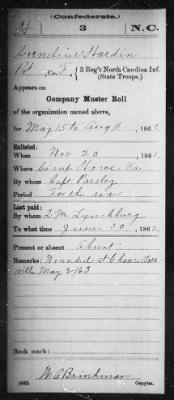 (Confederate.)
H 3 N.C.
Cornelius Hardin
Pt, Co. F, 3 Reg't North Carolina Inf.
(State Troops.)
Appears on
Company Muster Roll
of the organization named above,
for May 15 to Aug 11, 1863.
Enlisted:
When Nov 20, 186
Where Camp Howe Va
By whom Capt Parsley
Period For the war
Last paid:
By whom L M Lynchburg
To what time June 30, 186
Present or absent Absent
Remarks: Wounded at
ville May 3/63
Book mark:
Copyist.